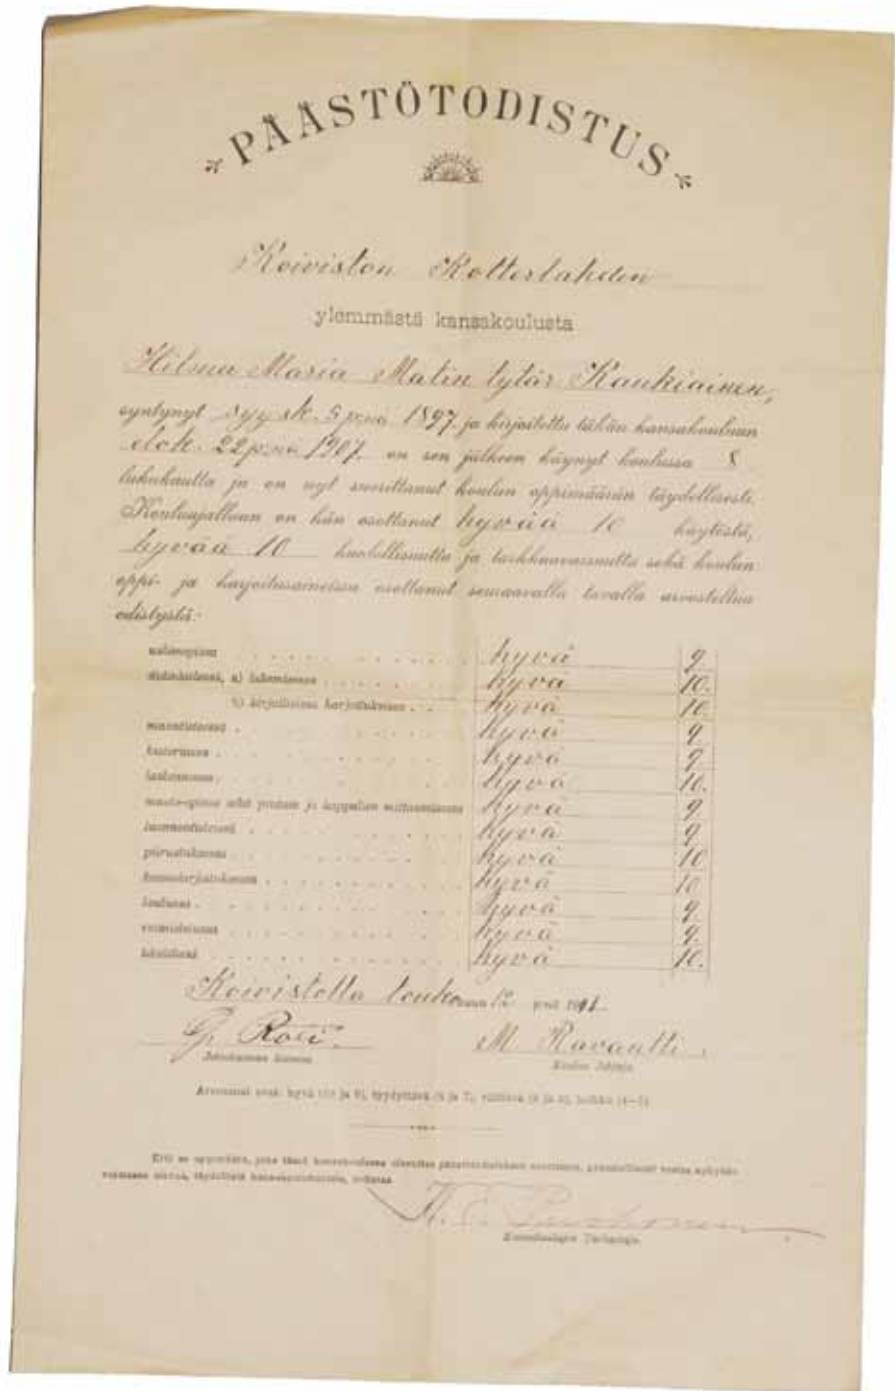 PÄÄSTÖTODISTUS
Koiviston Kotterlahden
ylemmästä kansakoulusta
Hilma Maria Matin tytär Kaukiainen,
syntynyt syysk. 5 p:nä 1897 ja kirjoitettu tähän kansakouluun
elok. 22 p:nä 1907. on sen jälkeen käynyt koulussa 8
lukukautta ja on nyt suorittanut koulun oppimäärän täydellisesti.
Kouluajallaan on hän osottanut hyvää 10 käytöstä,
hyvää 10 huolellisuutta ja tarkkaavaisuutta sekä koulun
oppi- ja harjoitusaineissa osottanut seuraavalla tavalla arvosteltua
edistystä:
uskonopissa hyvä 9
äidinkielessä, a) lukemisessa hyvä 10.
b) kirjallisissa harjoituksissa hyvä 10.
maantieteessä hyvä 9
historiassa hyvä 9
laskennossa hyvä 10.
muoto-opissa sekä pintain ja kappalten mittaamisessa hyvä 9
luonnontiedossa hyvä 9
piirustuksessa hyvä 10
kaunokirjoituksessa hyvä 10
laulussa hyvä 9.
voimistelussa hyvä 9.
käsitöissä hyvä 10.
Koivistolla touko kuun 12 p:nä 1911.
Rosi.
M Ravantti.
Johtokunnan
Koulun Johtaja.
Arvosanat ovat: hyvä (10 ja 9), tyydyttävä (8 ja 7), välttävä (6 ja 5), heikko (4–
Että se oppimäärä, joka tässä kansakoulussa
voimassa olevaa, täydellistä
K. E.
Kansakoulujen Tarkastaja.